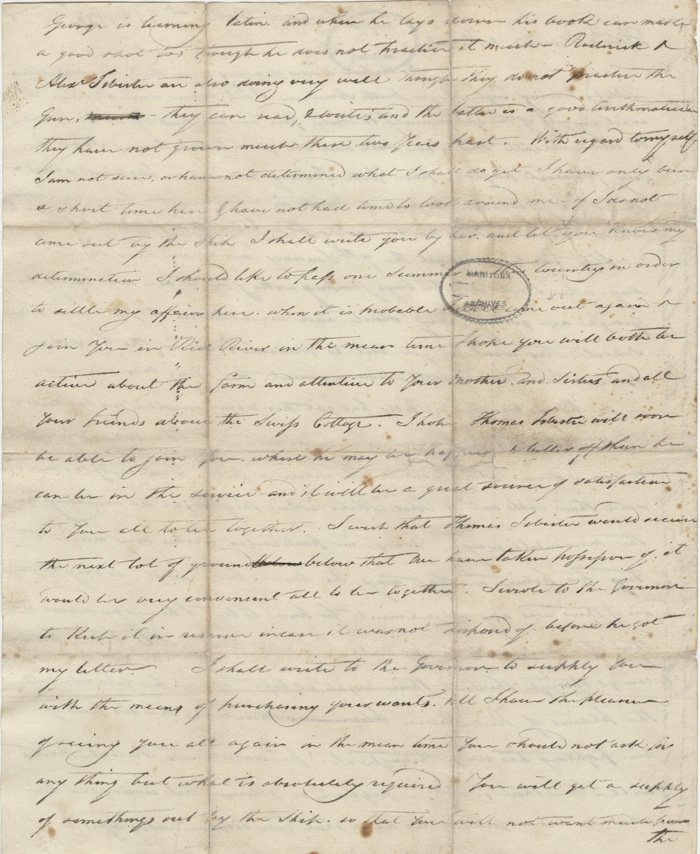 George is learning latin. and when he lays down his book can make
a good shot too though he does not practice it much - Roderick &
Alexr Isbister are also doing very well though they do not practice the
Gun, they can read, & write, and the latter is a good arithmatician
they have not grown much these two years past. With regard to myself
I am not sure, or have not determined what I shall do yet. I have only been
a short time here & have not had time to look around me - if I do not
come out by the Ship I shall write you by her. and let you know my
determination I should like to pass one Summer country in order
to settle my affairs here. when it is probable come out again &
join You in Red River. in the mean time I hope you will both be
active about the farm and attentive to Your Mother. and Sisters and all
Your friends about the Swiss Cottage. I hope Thomas Isbister will soon
be able to join You. where he may be & better off than he
can be in the service and it will be a great source of satisfaction
to You all to be together. I wish that Thomas Isbister would secure
the next lot of ground below that We have taken possession of. it
would be very convenient all to be together. I wrote to the Governor
to Keep it in reserve incase it was not disposed of before he got
my letter. I shall write to the Governor to supply You
with the means of purchasing your wants. till I have the pleasure
of seeing You all again in the mean time You should not ask for
any thing but what is absolutely required You will get a supply
of somethings out by the Ship. so that You will not want much from
the
MANITOBA
ARCHIVES